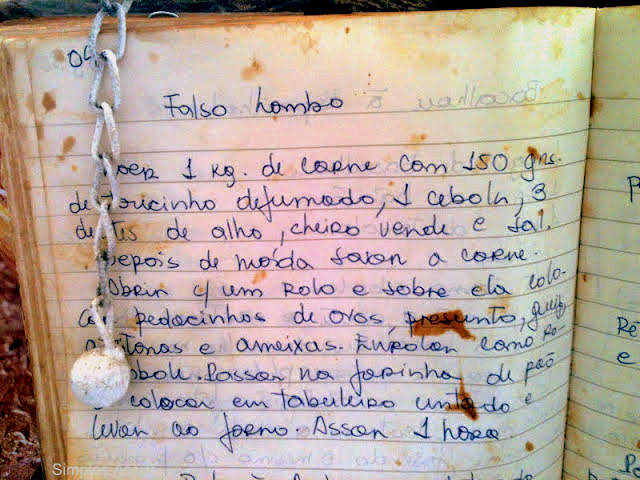 Falso Lombo
moer 1 kg. de carne com 150 grs.
de toucinho defumado, 1 cebola, 3
dentes de alho, cheiro verde e sal.
Depois de moída sovar a carne.
Abrir c/ um rolo e sobre ela colo-
car pedacinhos de ovos, presunto,
azeitonas e ameixas. Enrolar como ro-
cambole. Passar na farinha de pão
e colocar em tabuleiro untado e
levar ao forno. Assar 1 hora